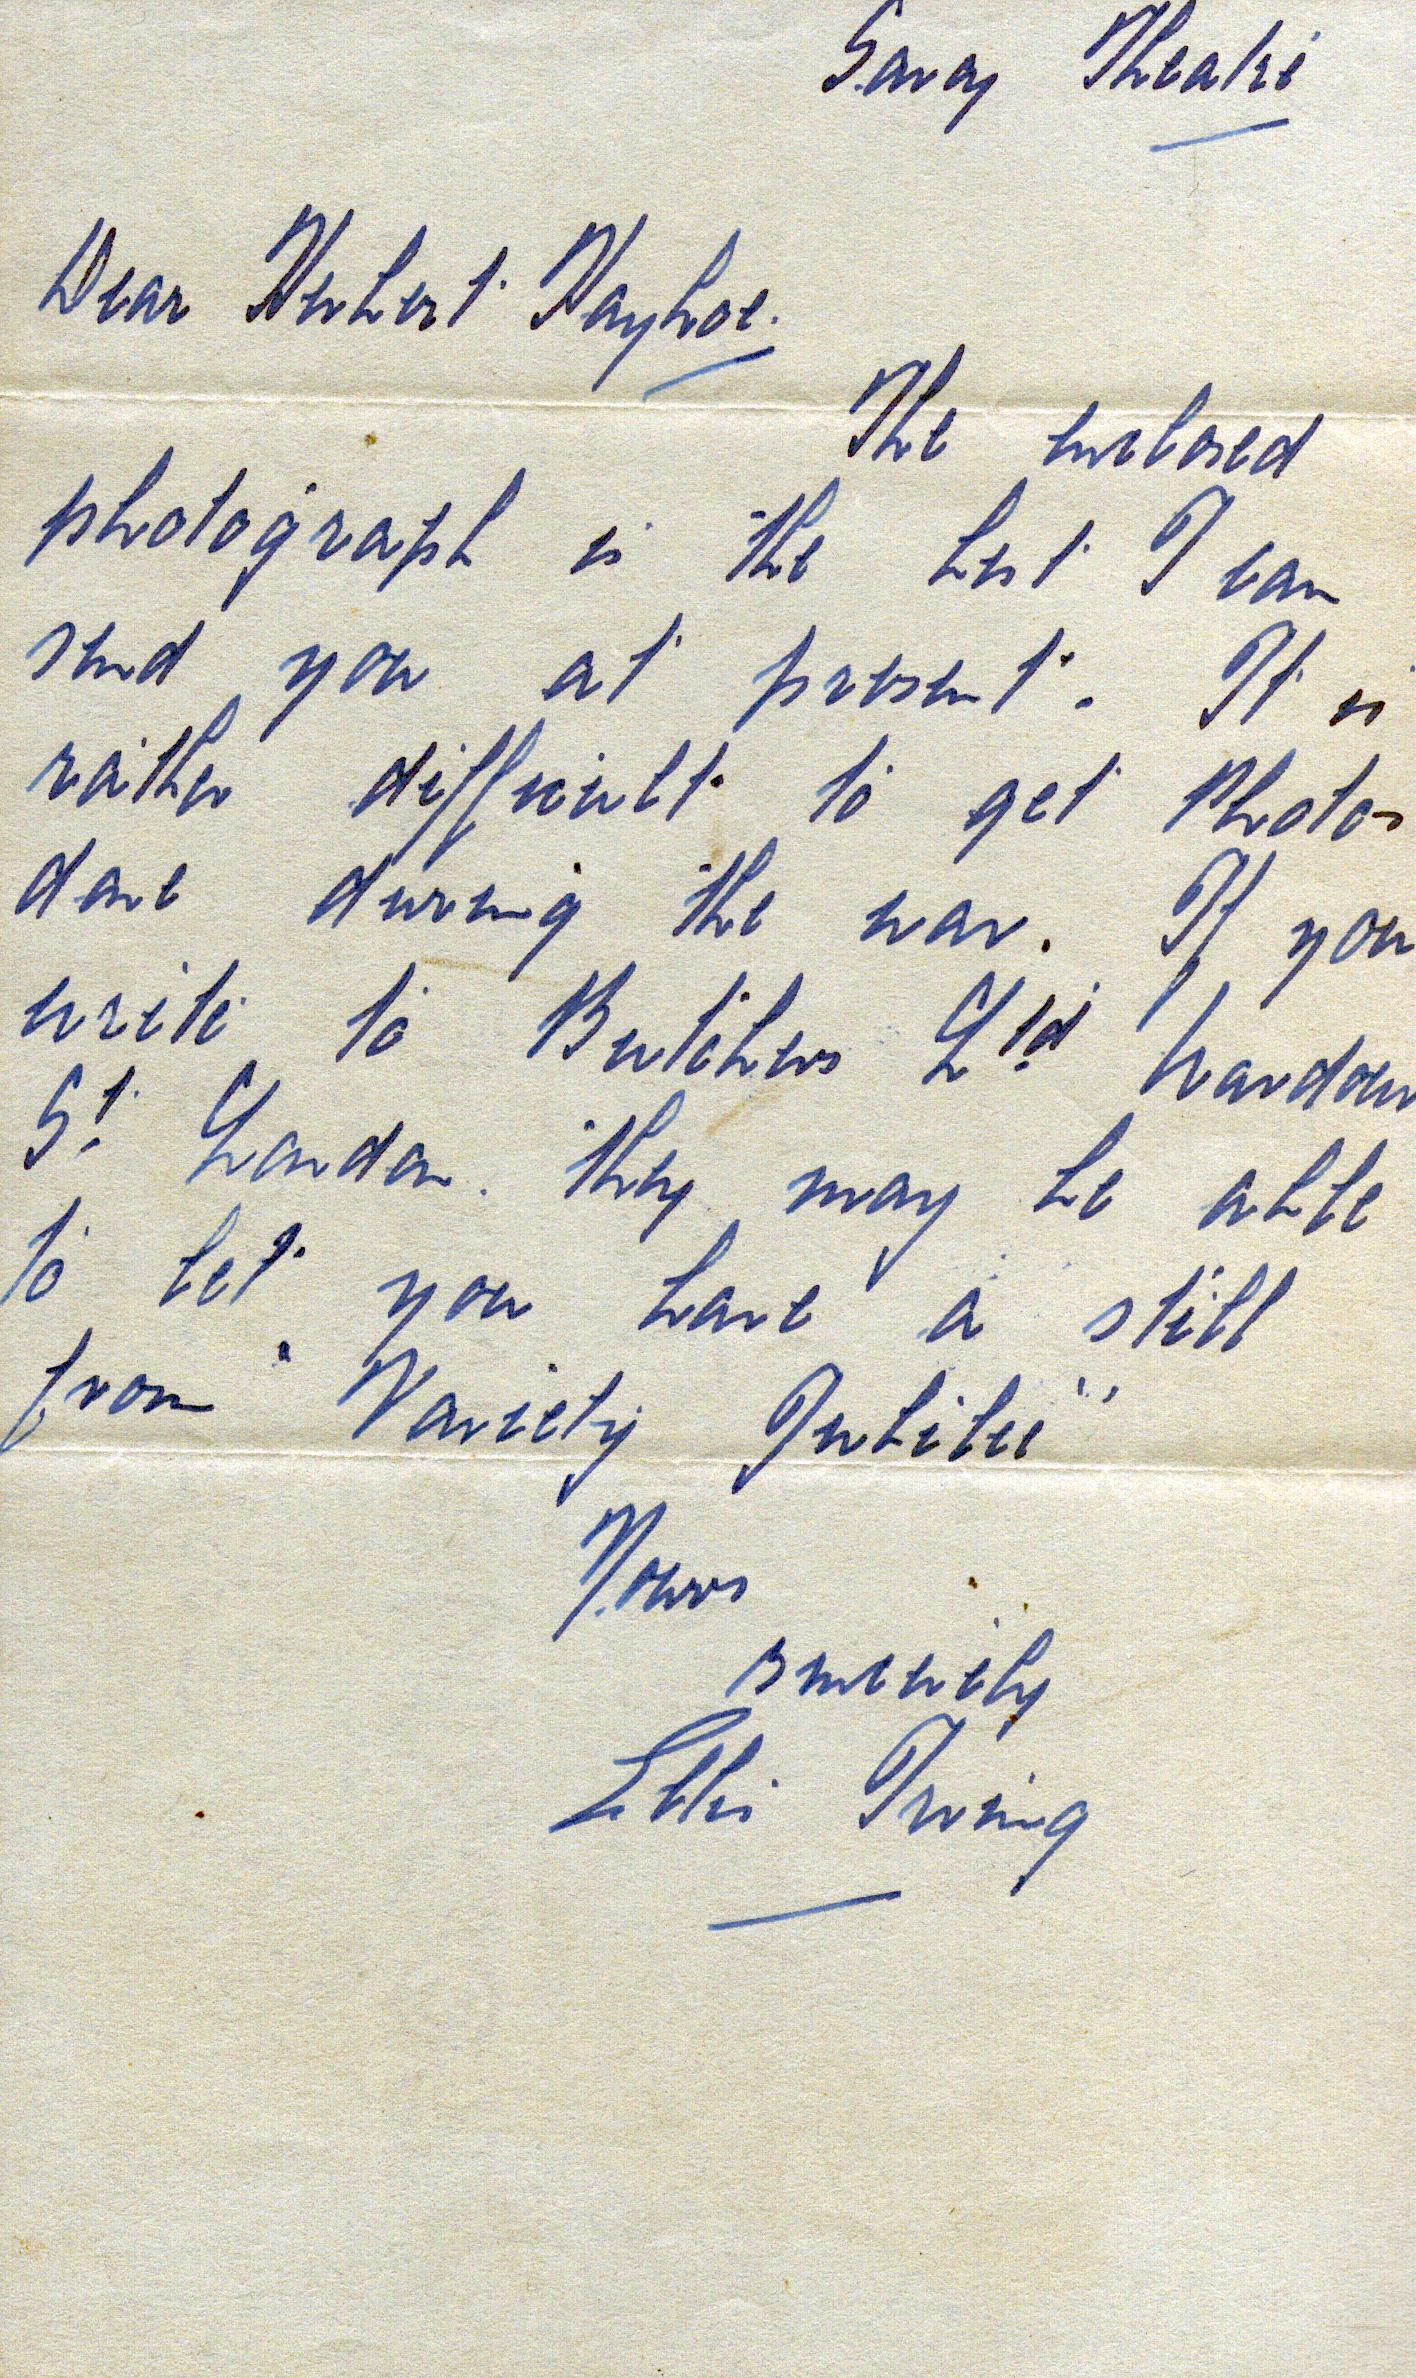 Savoy Theatre
Dear Herbert Hayhoe.
The enclosed
photograph is the best I can
send you at present. It is
rather difficult to get Photos
done during the war. If you
write to Butchers Ltd Wardour
St. London. they may be able
to let you have a still
from "Variety Jubilee"
Yours
sincerely
Ellis Irving